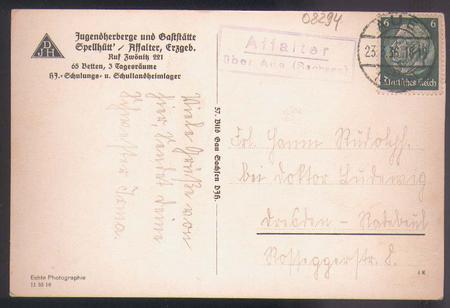 08294
DJH
Jugendherberge und Gaststätte
Spellhütt' / Affalter, Erzgeb.
Ruf Zwönitz 221
65 Betten, 3 Tagesräume
HJ.-Schulungs- u. Schullandheimlager
Affalter
über Aue (Sachsen)
6 6
Deutsches Reich
AUE
Viele Grüße von
hier, sendet deine
Schwester
57. Bild Gau Sachsen DJH.
Frl. Hanni Rudolph.
bei Doktor Ludewig
Dresden - Radebeul
Roseggerstr. 8.
Echte Photographie
1 K